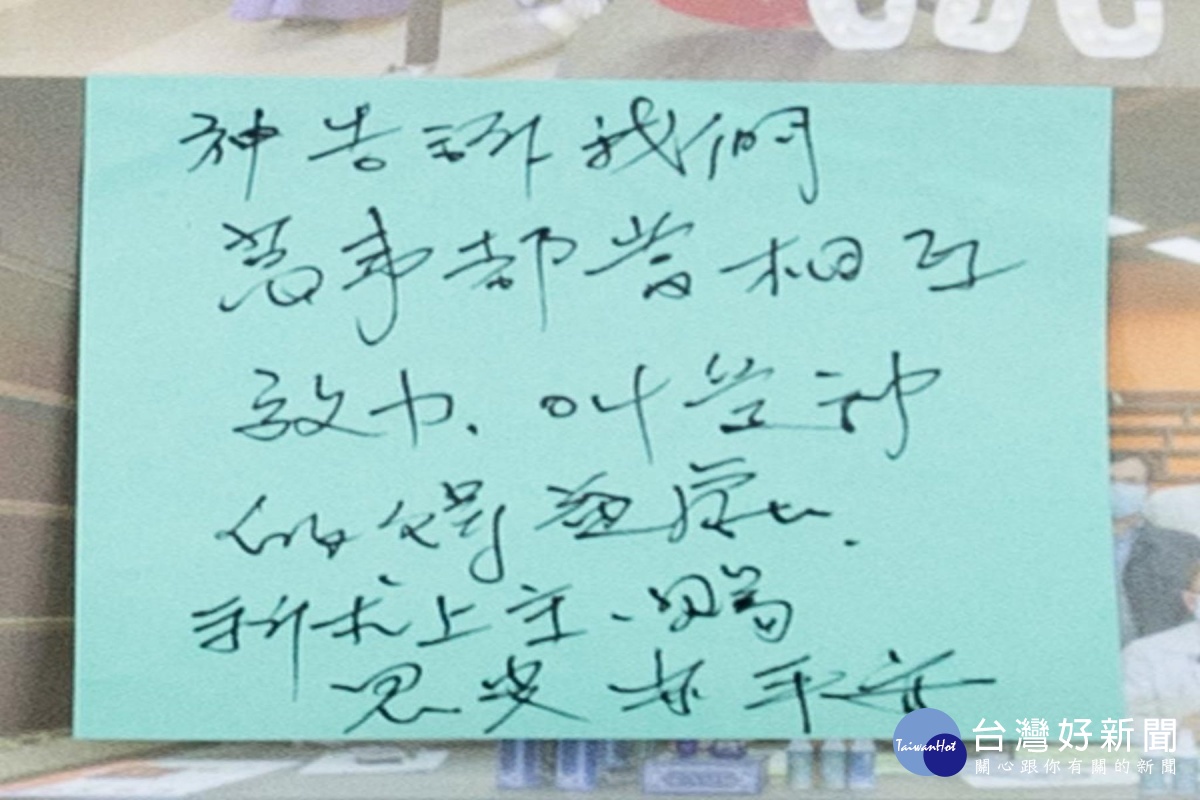 神告訴我們
萬事都當相互
效力.叫愛神
的人得益處.
祈求上主、賜
恩典 平安
台灣好新聞
TaiwanHot
關心跟你有關的新聞